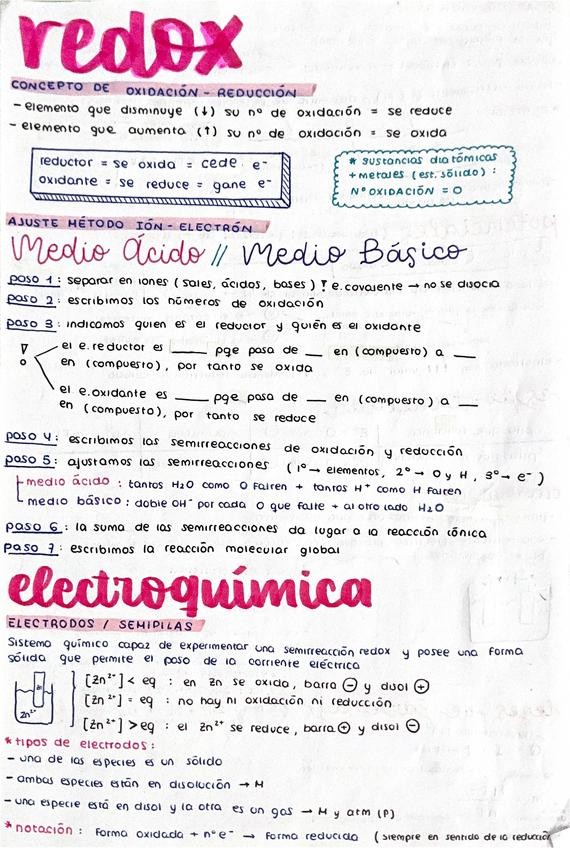 redox
CONCEPTO DE OXIDACIÓN - REDUCCIÓN
- elemento que disminuye (↓) su nº de oxidación = se reduce
- elemento que aumenta (↑) su nº de oxidación = se oxida
reductor = se oxida = cede e⁻
oxidante = se reduce = gane e⁻
* sustancias diatómicas
+ metales (est. sólido) :
Nº OXIDACIÓN = 0
AJUSTE MÉTODO IÓN - ELECTRÓN
Medio Ácido // Medio Básico
paso 1 : separar en iones (sales, ácidos, bases) ! e. covalente → no se disocia
paso 2 : escribimos los números de oxidación
paso 3 : indicamos quien es el reductor y quién es el oxidante
! el e. reductor es ____ pqe pasa de __ en (compuesto) a __
en (compuesto), por tanto se oxida
el e. oxidante es ____ pqe pasa de __ en (compuesto) a __
en (compuesto), por tanto se reduce
paso 4 : escribimos las semirreacciones de oxidación y reducción
paso 5 : ajustamos las semirreacciones (1º → elementos, 2º → O y H, 3º → e⁻)
medio ácido : tantos H₂O como O falten + tantos H⁺ como H falten
medio básico : doble OH⁻ por cada O que falte + al otro lado H₂O
paso 6 : la suma de las semirreacciones da lugar a la reacción iónica
paso 7 : escribimos la reacción molecular global
electroquímica
ELECTRODOS / SEMIPILAS
Sistema químico capaz de experimentar una semirreacción redox y posee una forma
sólida que permite el paso de la corriente eléctrica
Zn
Zn²⁺
[Zn²⁺] < eq : en Zn se oxida, barra ⊖ y disol ⊕
[Zn²⁺] = eq : no hay ni oxidación ni reducción
[Zn²⁺] > eq : el Zn²⁺ se reduce, barra ⊕ y disol ⊖
* tipos de electrodos :
- una de las especies es un sólido
- ambas especies están en disolución → M
- una especie está en disol y la otra es un gas → M y atm (P)
* notación : forma oxidada + nº e⁻ → forma reducida (siempre en sentido de la reducción